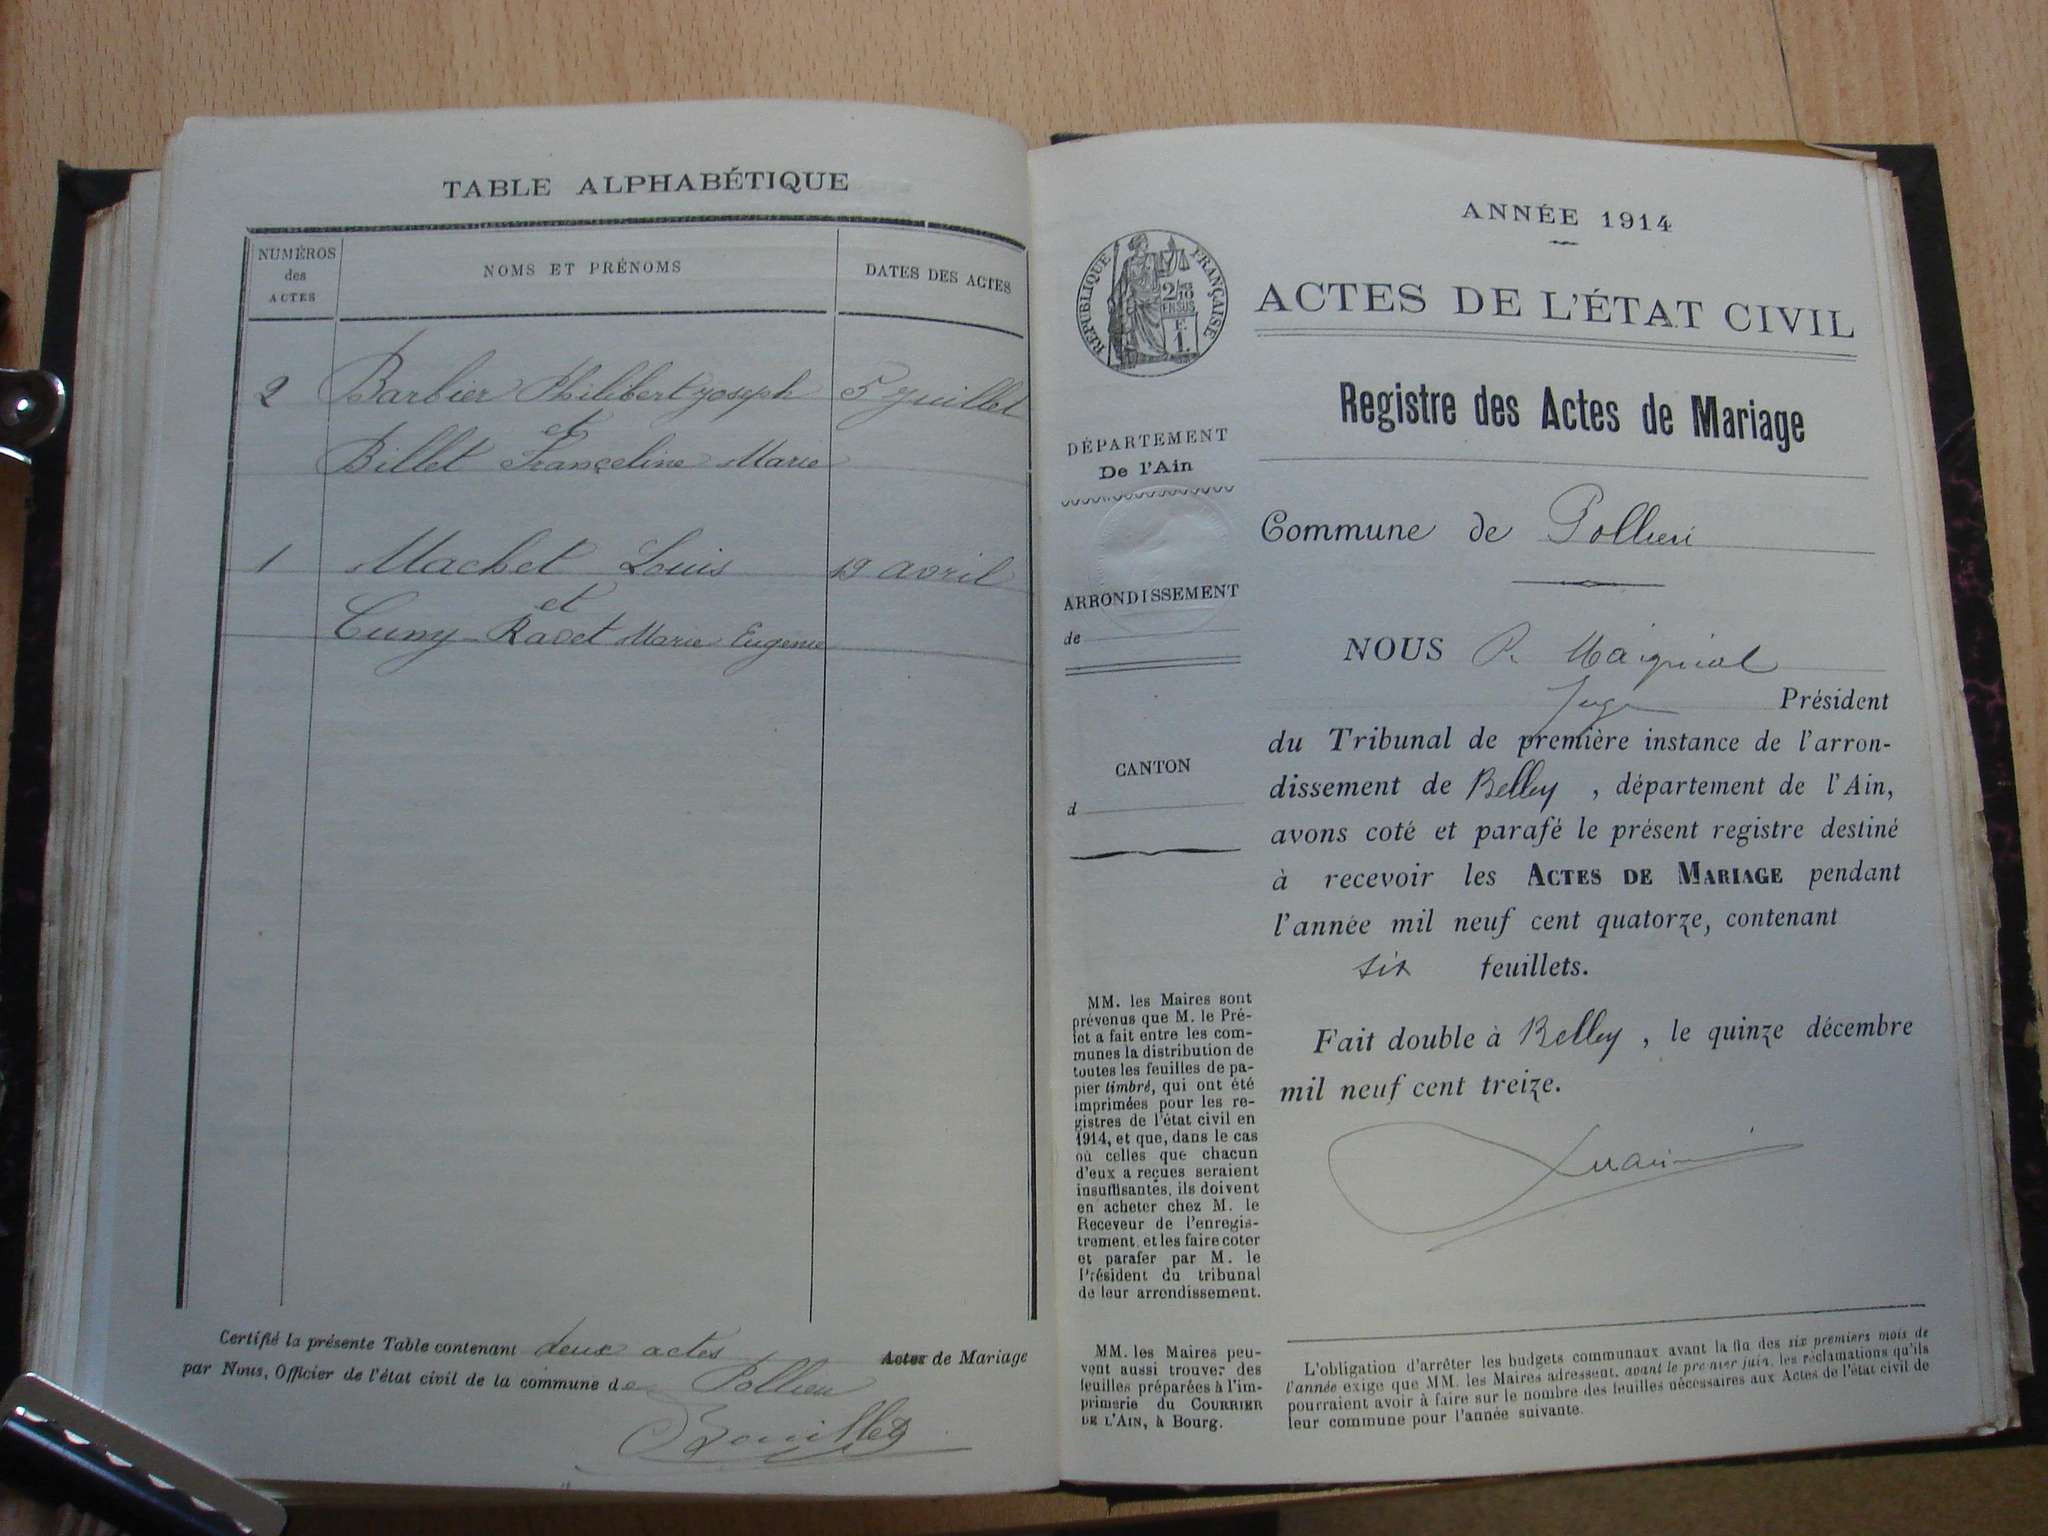 TABLE ALPHABÉTIQUE
NUMÉROS
des
ACTES
NOMS ET PRÉNOMS
DATES DES ACTES
2 Barbier Philibert Joseph 5 Juillet
et
Billet Françeline Marie
1 Machet Louis 19 avril
et
Cuny Ravet Marie Eugenie
Certifié la présente Table contenant deux actes Actes de Mariage
par Nous, Officier de l'état civil de la commune de Pollieu
ANNÉE 1914
RÉPUBLIQUE FRANÇAISE
2/10
EN SUS
F.
1.
ACTES DE L'ÉTAT CIVIL
Registre des Actes de Mariage
DÉPARTEMENT
De l'Ain
ARRONDISSEMENT
de
CANTON
d
MM. les Maires sont
prévenus que M. le Pré-
fet a fait entre les com-
munes la distribution de
toutes les feuilles de pa-
pier timbré, qui ont été
imprimées pour les re-
gistres de l'état civil en
1914, et que, dans le cas
où celles que chacun
d'eux a reçues seraient
insuffisantes, ils doivent
en acheter chez M. le
Receveur de l'enregis-
trement, et les faire coter
et parafer par M. le
Président du tribunal
de leur arrondissement.
MM. les Maires peu-
vent aussi trouver des
feuilles préparées à l'im-
primerie du COURRIER
DE L'AIN, à Bourg.
Commune de Pollieu
NOUS P. Maignial
Juge Président
du Tribunal de première instance de l'arron-
dissement de Belley, département de l'Ain,
avons coté et parafé le présent registre destiné
à recevoir les ACTES DE MARIAGE pendant
l'année mil neuf cent quatorze, contenant
six feuillets.
Fait double à Belley, le quinze décembre
mil neuf cent treize.
L'obligation d'arrêter les budgets communaux avant la fin des six premiers mois de
l'année exige que MM. les Maires adressent, avant le premier juin, les réclamations qu'ils
pourraient avoir à faire sur le nombre des feuilles nécessaires aux Actes de l'état civil de
leur commune pour l'année suivante.